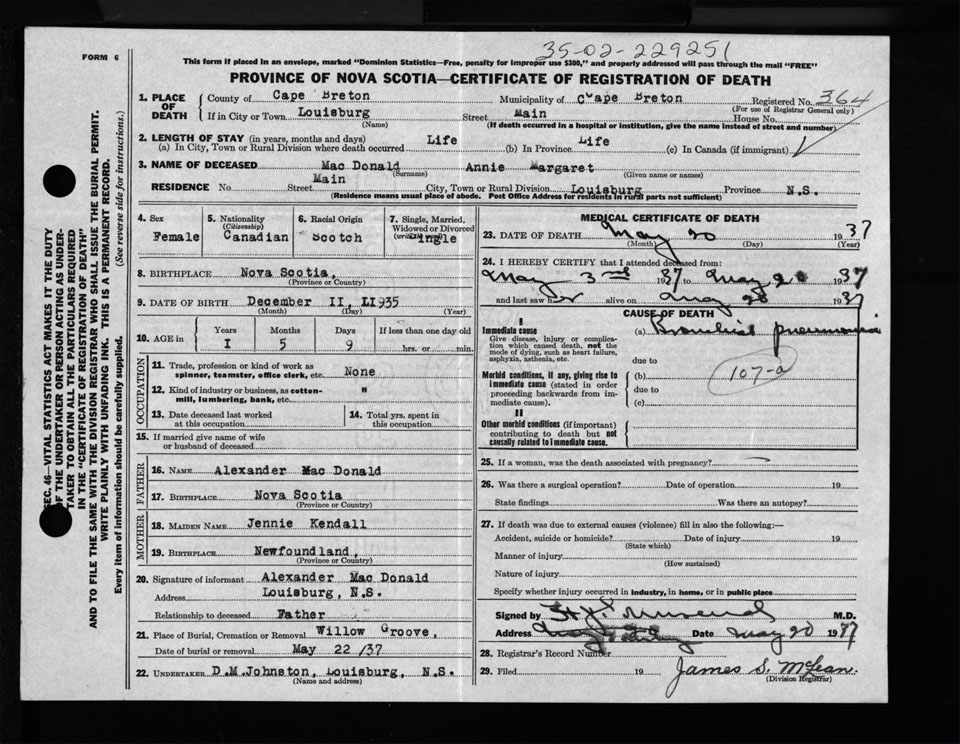 35-02-229251
FORM 6
This form if placed in an envelope, marked "Dominion Statistics—Free, penalty for improper use $300," and properly addressed will pass through the mail "FREE"
PROVINCE OF NOVA SCOTIA—CERTIFICATE OF REGISTRATION OF DEATH
SEC. 46—VITAL STATISTICS ACT MAKES IT THE DUTY
OF THE UNDERTAKER OR PERSON ACTING AS UNDER-
TAKER TO OBTAIN ALL THE PARTICULARS REQUIRED
IN THE "CERTIFICATE OF REGISTRATION OF DEATH"
AND TO FILE THE SAME WITH THE DIVISION REGISTRAR WHO SHALL ISSUE THE BURIAL PERMIT.
WRITE PLAINLY WITH UNFADING INK. THIS IS A PERMANENT RECORD.
Every item of information should be carefully supplied. (See reverse side for instructions.)
1. PLACE OF DEATH County of Cape Breton Municipality of C"ape Breton Registered No. 364
(For use of Registrar General only)
If in City or Town Louisburg Street Main House No.
(Name) (If death occurred in a hospital or institution, give the name instead of street and number)
2. LENGTH OF STAY (in years, months and days)
(a) In City, Town or Rural Division where death occurred Life (b) In Province Life (c) In Canada (if immigrant)
3. NAME OF DECEASED Mac Donald Annie Margaret
(Surname) (Given name or names)
RESIDENCE No. Street Main City, Town or Rural Division Louisburg Province N.S.
(Residence means usual place of abode. Post Office Address for residents in rural parts not sufficient)
4. Sex Female
5. Nationality (Citizenship) Canadian
6. Racial Origin Scotch
7. Single, Married, Widowed or Divorced ingle
8. BIRTHPLACE Nova Scotia,
(Province or Country)
9. DATE OF BIRTH December II, LI935
(Month) (Day) (Year)
10. AGE in Years Months Days If less than one day old
I 5 9 hrs. or min.
OCCUPATION
11. Trade, profession or kind of work as spinner, teamster, office clerk, etc. None
12. Kind of industry or business, as cotton-mill, lumbering, bank, etc. "
13. Date deceased last worked at this occupation
14. Total yrs. spent in this occupation
15. If married give name of wife or husband of deceased
FATHER
16. NAME Alexander Mac Donald
17. BIRTHPLACE Nova Scotia
(Province or Country)
MOTHER
18. MAIDEN NAME Jennie Kendall
19. BIRTHPLACE Newfoundland,
(Province or Country)
20. Signature of informant Alexander Mac Donald
Address Louisburg, N.S.
Relationship to deceased Father
21. Place of Burial, Cremation or Removal Willow Groove,
Date of burial or removal May 22 /37
22. UNDERTAKER D.M.Johnston, Louisburg, N.S.
(Name and address)
MEDICAL CERTIFICATE OF DEATH
23. DATE OF DEATH May 20 1937
(Month) (Day) (Year)
24. I HEREBY CERTIFY that I attended deceased from:
May 3rd 1937 to May 20 1937
and last saw her alive on May 20 1937
CAUSE OF DEATH
I
Immediate cause (a) Bronchial pneumonia
Give disease, injury or complica-
tion which caused death, not the
mode of dying, such as heart failure,
asphyxia, asthenia, etc. due to
Morbid conditions, if any, giving rise to (b) 107-a
immediate cause (stated in order due to
proceeding backwards from im-
mediate cause). (c)
II
Other morbid conditions (if important)
contributing to death but not
causally related to immediate cause.
25. If a woman, was the death associated with pregnancy?
26. Was there a surgical operation? Date of operation 19
State findings Was there an autopsy?
27. If death was due to external causes (violence) fill in also the following:—
Accident, suicide or homicide? Date of injury 19
(State which)
Manner of injury
(How sustained)
Nature of injury
Specify whether injury occurred in industry, in home, or in public place
Signed by M.D.
Address Date May 20 1937
28. Registrar's Record Number
29. Filed 19 James S. McLean.
(Division Registrar)